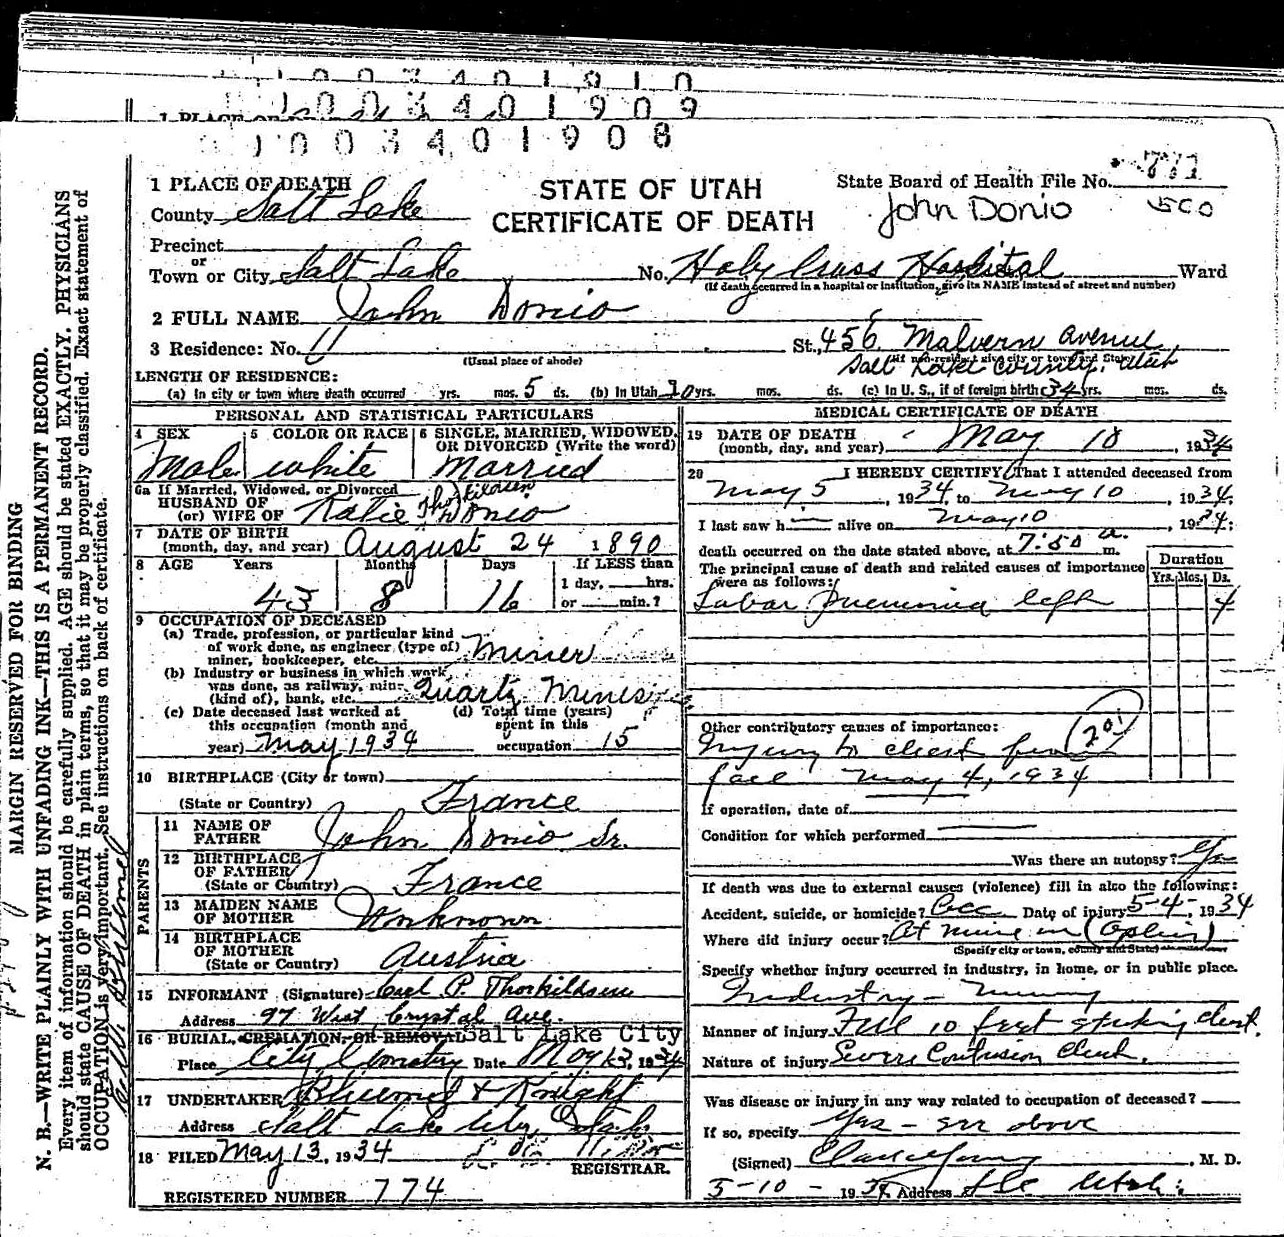 1003401910
1003401909
1 PLACE OF
1003401908
1 PLACE OF DEATH
County Salt Lake
STATE OF UTAH
CERTIFICATE OF DEATH
State Board of Health File No. 771
John Donio
Precinct
or
Town or City Salt Lake No. Holy Cross Hospital Ward
(If death occurred in a hospital or institution, give its NAME instead of street and number)
2 FULL NAME John Donio
3 Residence: No. St., 456 Malvern Avenue
(Usual place of abode) (If non-resident give city or town and State)
Salt Lake County, Utah
LENGTH OF RESIDENCE:
(a) In city or town where death occurred yrs. mos. 5 ds. (b) In Utah 20 yrs. mos. ds. (c) In U. S., if of foreign birth 34 yrs. mos. ds.
PERSONAL AND STATISTICAL PARTICULARS
4 SEX 5 COLOR OR RACE 6 SINGLE, MARRIED, WIDOWED, OR DIVORCED (Write the word)
Male white Married
6a If Married, Widowed, or Divorced
HUSBAND OF
(or) WIFE OF Katie Thorkildsen Donio
7 DATE OF BIRTH
(month, day, and year) August 24 1890
8 AGE Years Months Days If LESS than
1 day, hrs.
43 8 16 or min.?
9 OCCUPATION OF DECEASED
(a) Trade, profession, or particular kind
of work done, as engineer (type of)
miner, bookkeeper, etc. Miner
(b) Industry or business in which work
was done, as railway, mine
(kind of), bank, etc. Quartz Mines
(c) Date deceased last worked at (d) Total time (years)
this occupation (month and spent in this
year) May 1934 occupation 15
10 BIRTHPLACE (City or town)
(State or Country) France
PARENTS
11 NAME OF
FATHER John Donio Sr.
12 BIRTHPLACE
OF FATHER
(State or Country) France
13 MAIDEN NAME
OF MOTHER Unknown
14 BIRTHPLACE
OF MOTHER
(State or Country) Austria
15 INFORMANT (Signature) Carl P. Thorkildsen
Address 97 West Crystal Ave.
16 BURIAL, CREMATION, OR REMOVAL Salt Lake City
Place City Cemetery Date May 13, 1934
17 UNDERTAKER Bluemel & Knight
Address Salt Lake City, Utah
18 FILED May 13, 1934
REGISTRAR.
REGISTERED NUMBER 774
MEDICAL CERTIFICATE OF DEATH
19 DATE OF DEATH
(month, day, and year) May 10, 1934
20 I HEREBY CERTIFY, That I attended deceased from
May 5, 1934, to May 10, 1934.
I last saw h im alive on May 10, 1934;
death occurred on the date stated above, at 7:50 a. m.
The principal cause of death and related causes of importance
were as follows:
Duration
Yrs. Mos. Ds.
Lobar Pneumonia left 4
Other contributary causes of importance:
201
Injury to chest from
fall May 4, 1934
If operation, date of
Condition for which performed
Was there an autopsy? Yes
If death was due to external causes (violence) fill in also the following:
Accident, suicide, or homicide? Acc Date of injury 5-4-, 1934
Where did injury occur? At mine in (Ophir)
(Specify city or town, county and State)
Specify whether injury occurred in industry, in home, or in public place.
Industry - Mining
Manner of injury Fell 10 feet striking chest.
Nature of injury Severe Contusion Chest.
Was disease or injury in any way related to occupation of deceased?
If so, specify Yes - see above
(Signed) , M. D.
5-10-1934 Address SLC Utah.
MARGIN RESERVED FOR BINDING
N. B.—WRITE PLAINLY WITH UNFADING INK—THIS IS A PERMANENT RECORD.
Every item of information should be carefully supplied. AGE should be stated EXACTLY. PHYSICIANS
should state CAUSE OF DEATH in plain terms, so that it may be properly classified. Exact statement of
OCCUPATION is very important. See instructions on back of certificate.